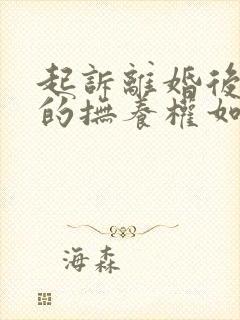 起訴離婚後
的撫養權如
海森